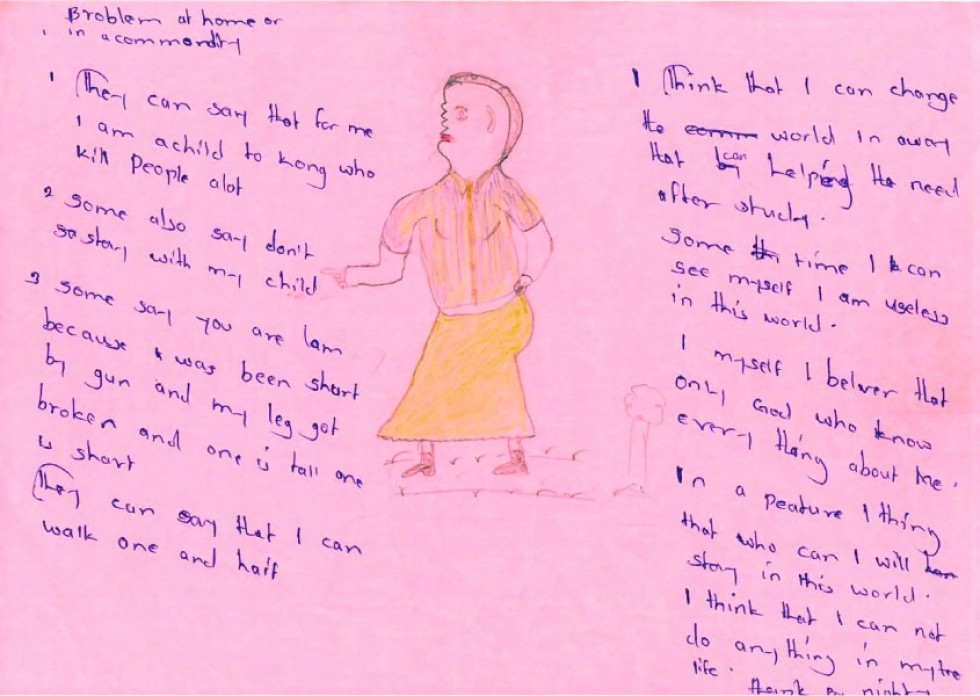 Problem at home or
in a commondity
1 They can say that for me
I am a child to kong who
kill people alot
2 Some also say don't
so stay with my child
3 Some say you are lam
because I was been short
by gun and my leg got
broken and one is tall one
is short
They can say that I can
walk one and half
I Think that I can change
the world in away
that I can helping the need
after study.
Some time I can
see myself I am useless
in this world.
I myself I belver that
only God who know
every thing about me.
In a peature I thing
that who can I will
stay in this world.
I think that I can not
do anything in my
life. think night